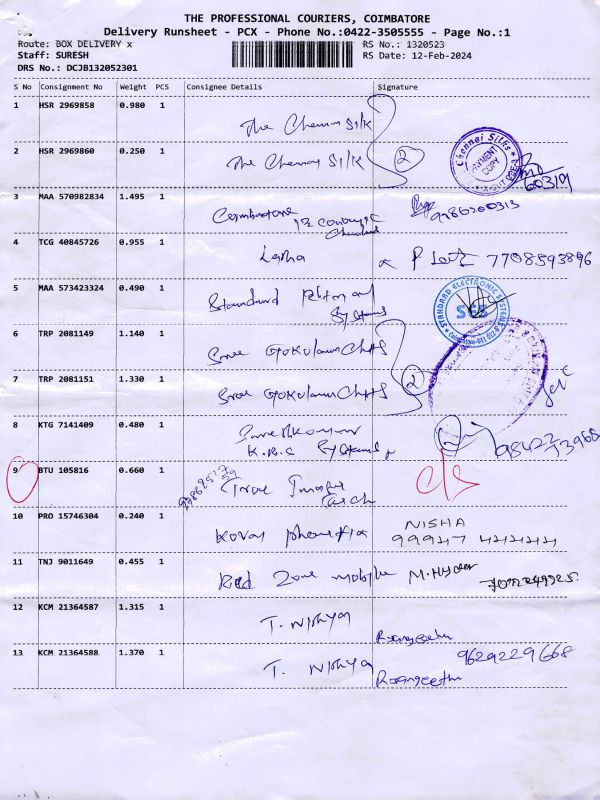 THE PROFESSIONAL COURIERS, COIMBATORE
Delivery Runsheet - PCX - Phone No.:0422-3505555 - Page No.:1
Route: BOX DELIVERY x RS No.: 1320523
Staff: SURESH RS Date: 12-Feb-2024
DRS No.: DCJB132052301
S No Consignment No Weight PCS Consignee Details Signature
1 HSR 2969858 0.980 1
The Chennai Silk
2 HSR 2969860 0.250 1 The Chennai Silk 2
Chennai Silks
PAYMENT COPY
3 MAA 570982834 1.495 1
Coimbatore
4 TCG 40845726 0.955 1 7708593896
5 MAA 573423324 0.490 1 Standard
Systems
STANDARD ELECTRONIC SYSTEMS
SES
6 TRP 2081149 1.140 1 Sree Gokulam Chits
7 TRP 2081151 1.330 1 Sree Gokulam Chits 2
8 KTG 7141409 0.480 1
K.R.C Systems
9 BTU 105816 0.660 1 True Image
Tech
10 PRO 15746304 0.240 1 Kovai NISHA
99947 44444
11 TNJ 9011649 0.455 1 Red Zone mobile M. Hyder
12 KCM 21364587 1.315 1 T. Nithya
Rsangeetha
13 KCM 21364588 1.370 1 T. Nithya Rsangeetha 9629229668